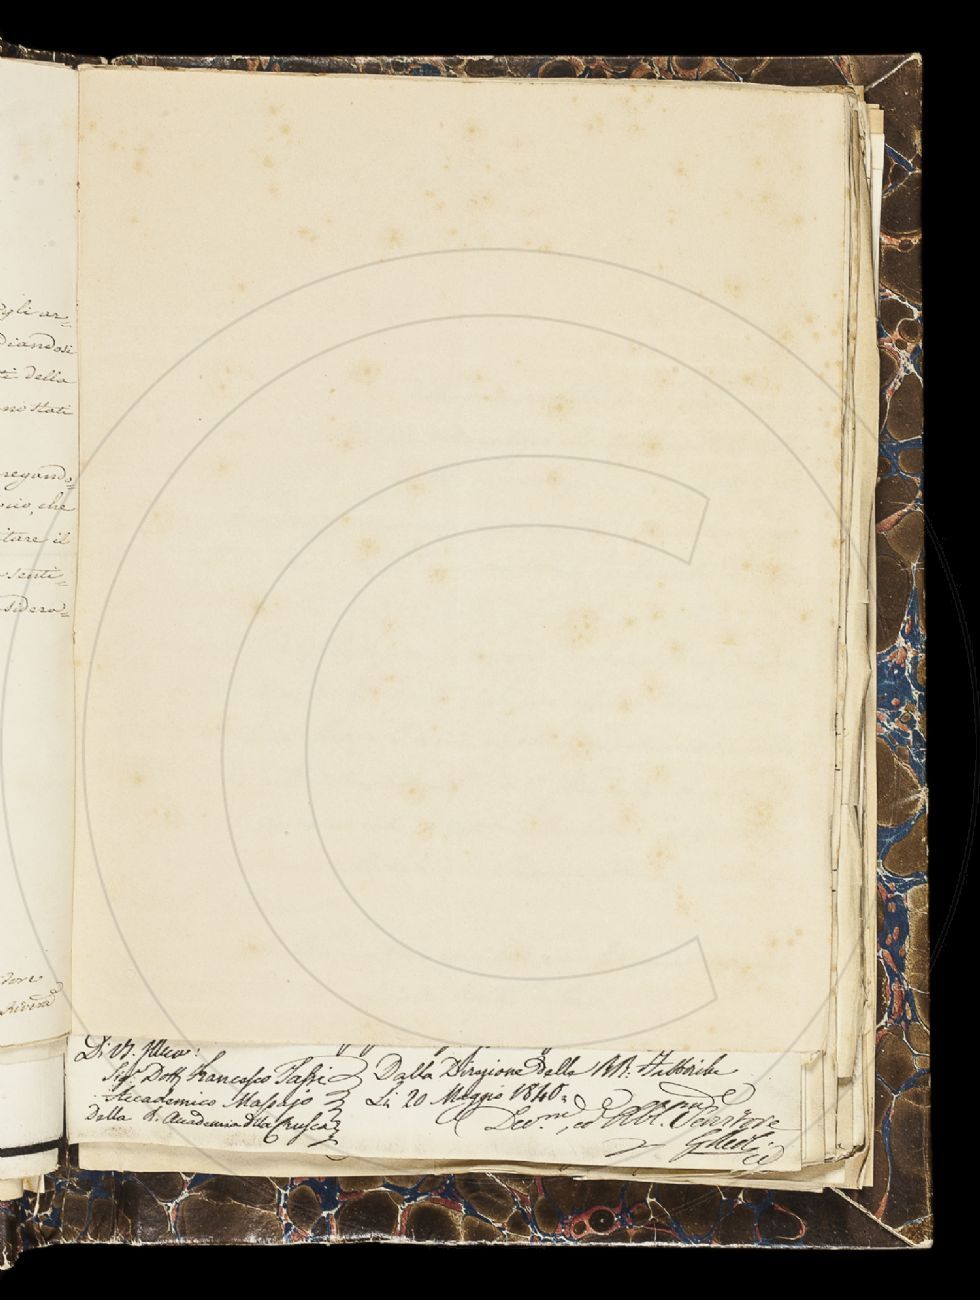 gli ar=
diandosi
ti della
ni Stati
regando=
cio, che
tare il
senti=
sidera=
tore
D. V. Illma:
Sigr Dott Francesco Tassi
Accademico
Della R. Accademia della Crusca
Dalla Direzione delle RR. Fabbriche
Li 20 Maggio 1840.
Dev.mo, ed Obb. Servitore